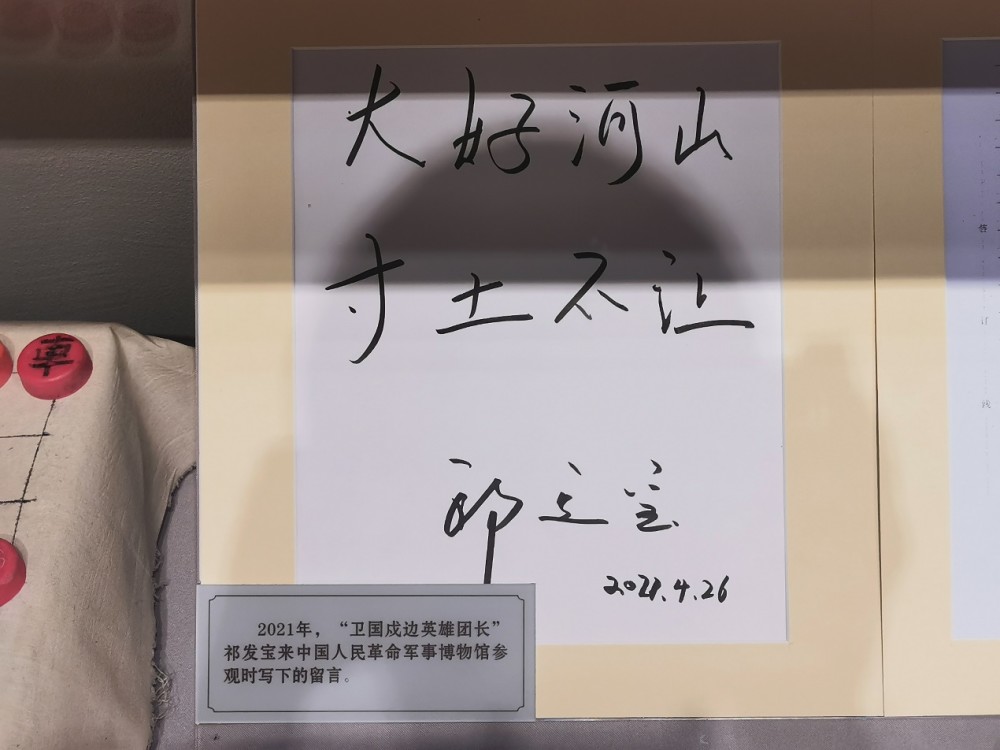 大好河山
寸土不让
祁发宝
2021.4.26
2021年，“卫国戍边英雄团长”
祁发宝来中国人民革命军事博物馆参
观时写下的留言。
車